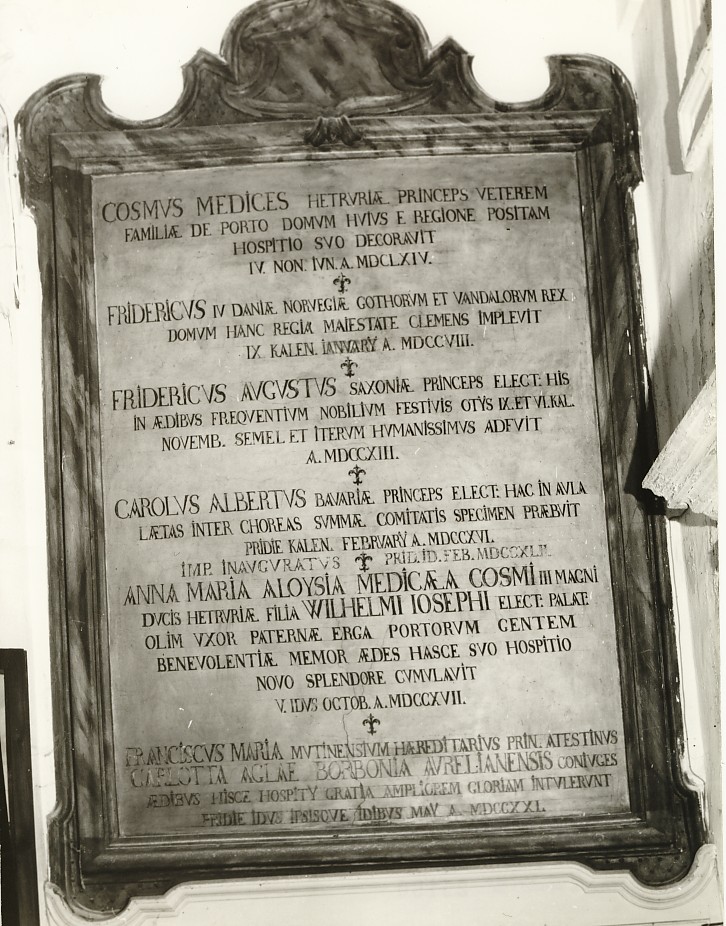 COSMVS MEDICES HETRVRIÆ PRINCEPS VETEREM
FAMILIÆ DE PORTO DOMVM HVIVS E REGIONE POSITAM
HOSPITIO SVO DECORAVIT
IV. NON. IVN. A. MDCLXIV.
FRIDERICVS IV DANIÆ NORVEGIÆ GOTHORVM ET VANDALORVM REX
DOMVM HANC REGIA MAIESTATE CLEMENS IMPLEVIT
IX KALEN. IANVARY A. MDCCVIII.
FRIDERICVS AVGVSTVS SAXONIÆ PRINCEPS ELECT: HIS
IN ÆDIBVS FREQVENTIVM NOBILIVM FESTIVIS OTYS IX. ET VI. KAL.
NOVEMB. SEMEL ET ITERVM HVMANISSIMVS ADFVIT
A. MDCCXIII.
CAROLVS ALBERTVS BAVARIÆ PRINCEPS ELECT: HAC IN AVLA
LÆTAS INTER CHOREAS SVMMÆ COMITATIS SPECIMEN PRÆBVIT
PRIDIE KALEN. FEBRVARY A. MDCCXVI.
IMP. INAVGVRATVS PRID. ID. FEB. MDCCXLII.
ANNA MARIA ALOYSIA MEDICÆA COSMI III MAGNI
DVCIS HETRVRIÆ FILIA WILHELMI IOSEPHI ELECT: PALAT:
OLIM VXOR PATERNÆ ERGA PORTORVM GENTEM
BENEVOLENTIÆ MEMOR ÆDES HASCE SVO HOSPITIO
NOVO SPLENDORE CVMVLAVIT
V. IDVS OCTOB. A. MDCCXVII.
FRANCISCVS MARIA MVTINENSIVM HÆREDITARIVS PRIN. ATESTINVS
CARLOTTA AGLAE BORBONIA AVRELIANENSIS CONIVGES
ÆDIBVS HISCE HOSPITY GRATIA AMPLIOREM GLORIAM INTVLERVNT
PRIDIE IDVS IPSISQVE IDIBVS MAY A. MDCCXXI.